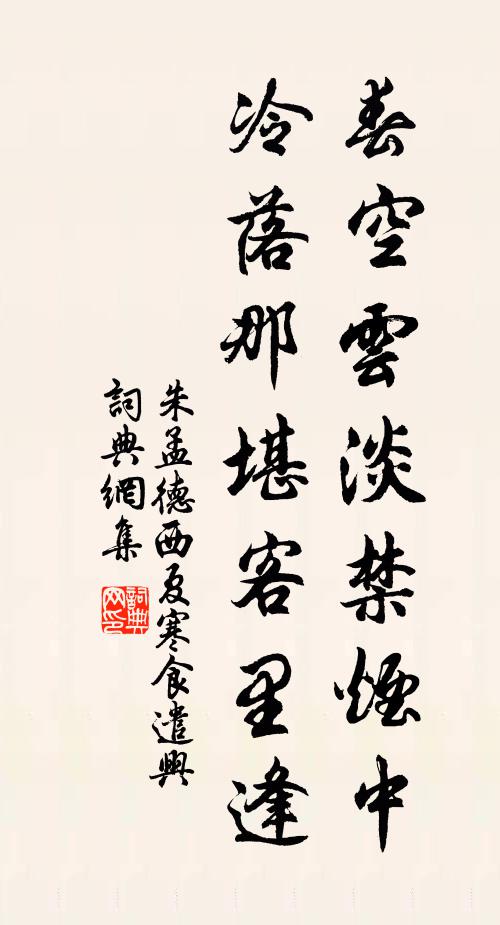 春空雲淡禁煙中
冷落那堪客里逢
朱孟德西夏寒食遣興
詞典網集
詞典
网印